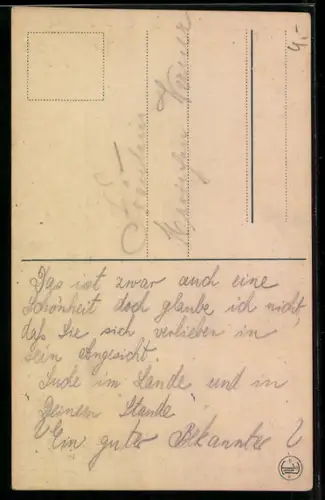 4.-
Fräulein
Das ist zwar auch eine
Schönheit doch glaube ich nicht,
daß Sie sich verlieben in
sein Angesicht.
Suche im Lande und in
Deinem Stande
Ein guter Bekannter